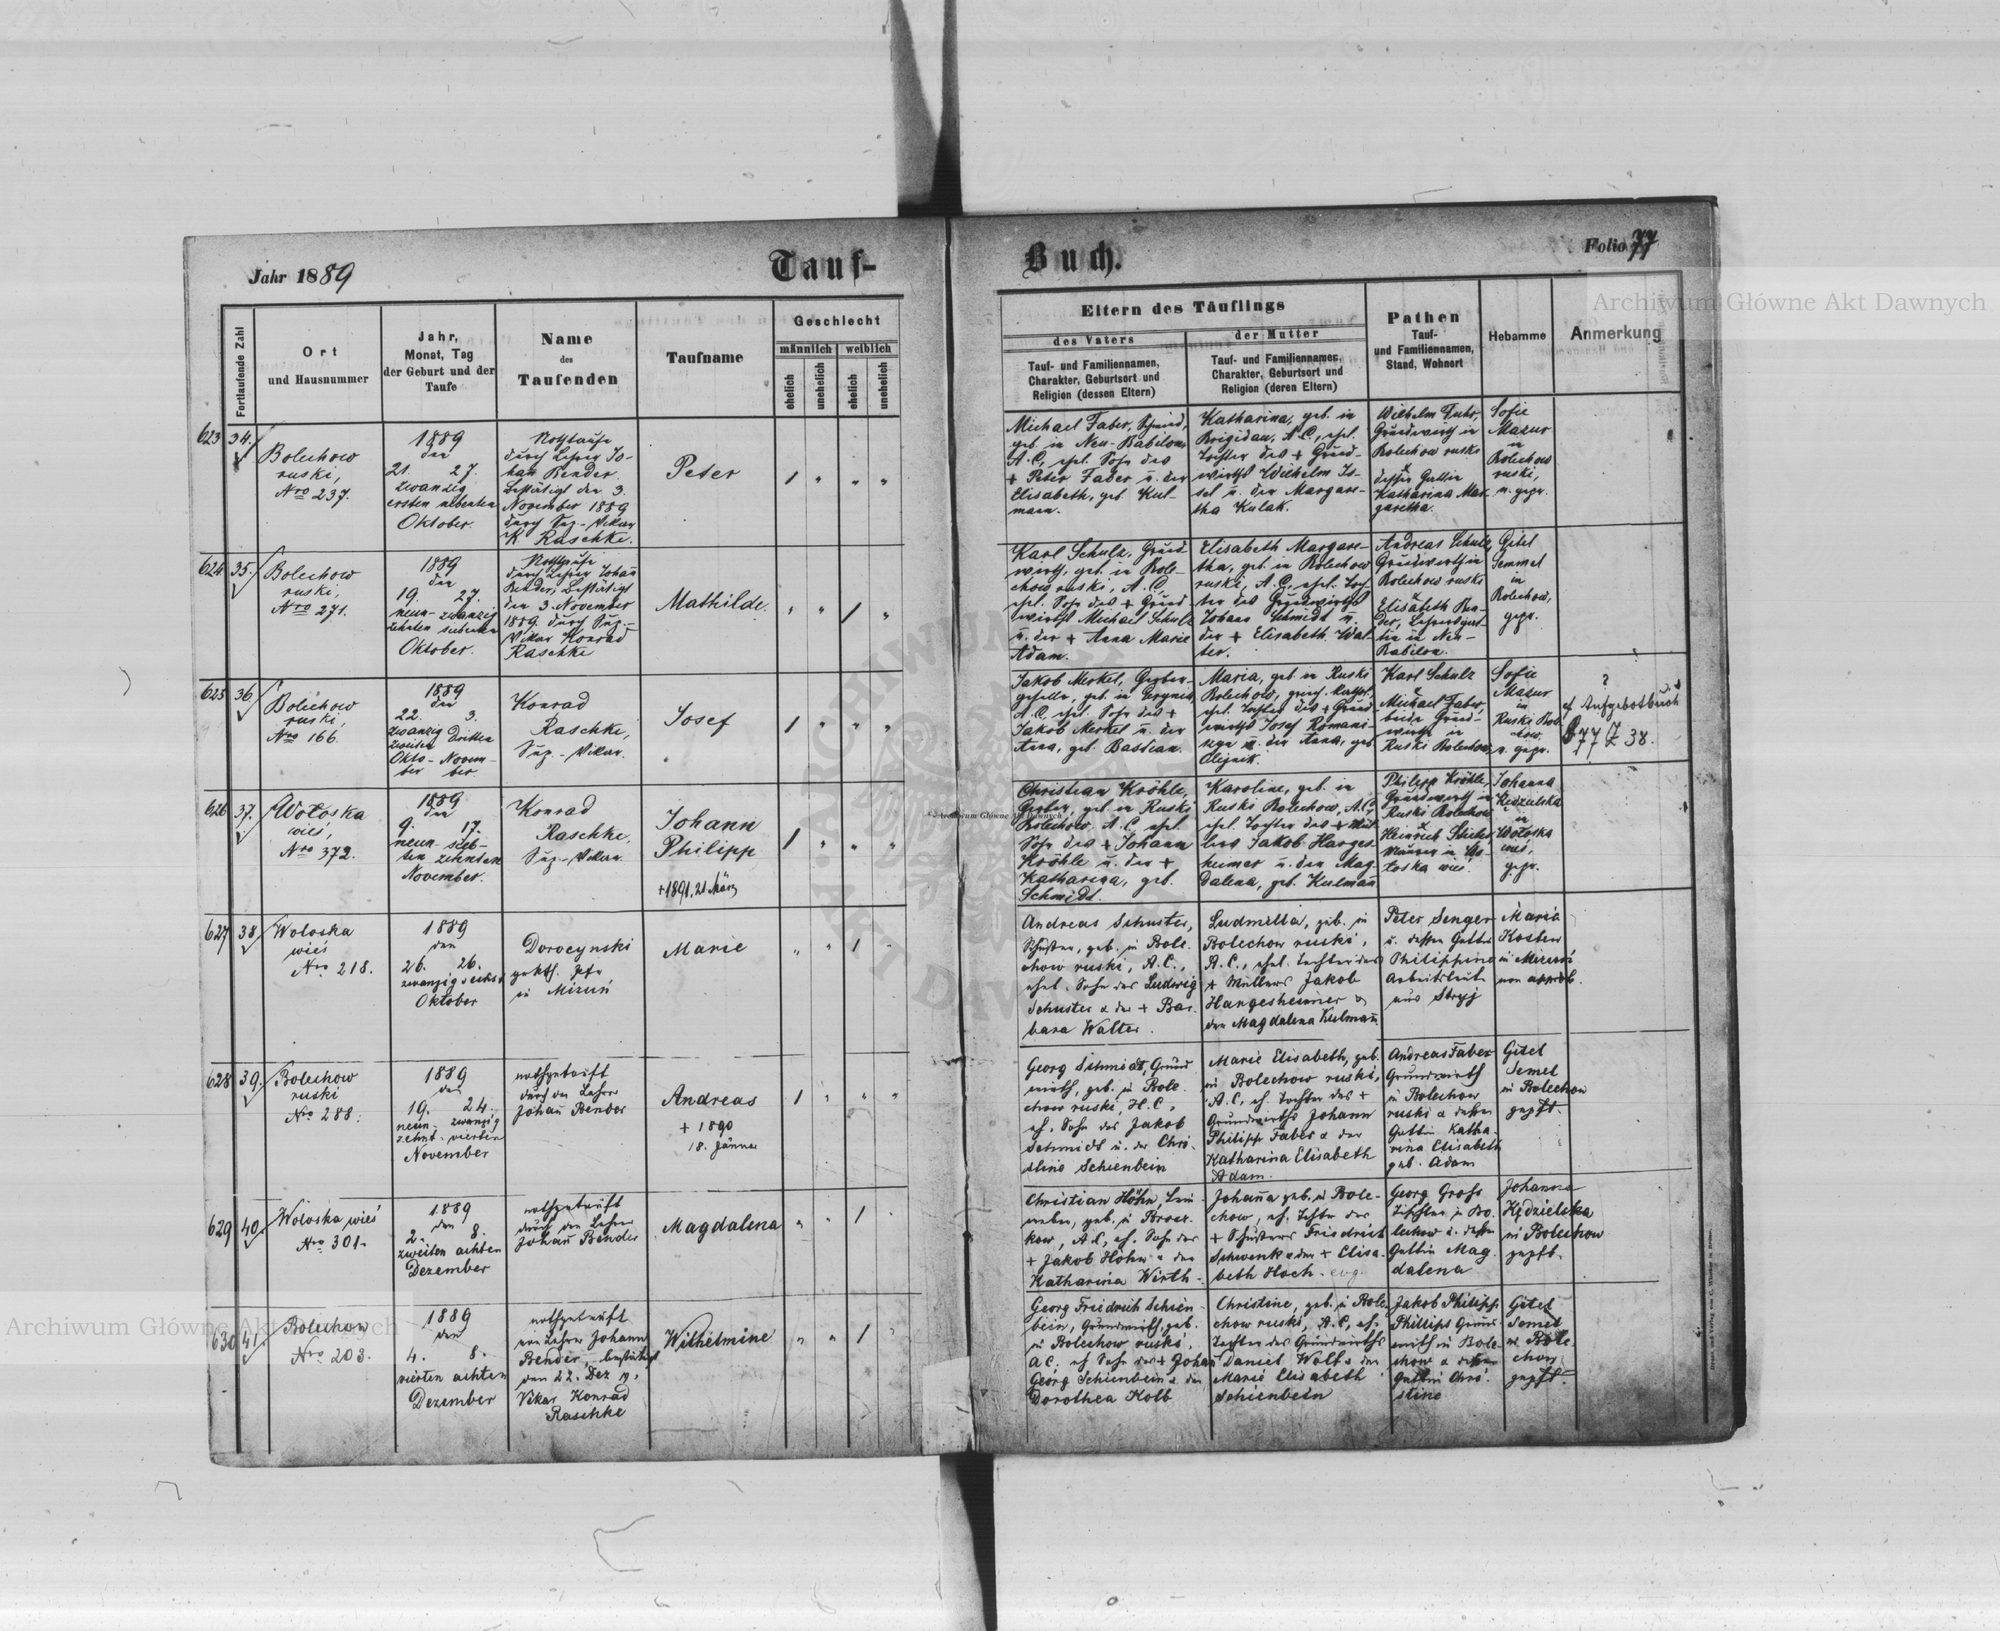 Jahr 1889
Tauf-
Buch.
Folio 77
Archiwum Główne Akt Dawnych
Fortlaufende Zahl
Ort
und Hausnummer
Jahr,
Monat, Tag
der Geburt und der
Taufe
Name
des
Taufenden
Taufname
Geschlecht
männlich
weiblich
ehelich
unehelich
ehelich
unehelich
Eltern des Täuflings
des Vaters
Tauf- und Familiennamen,
Charakter, Geburtsort und
Religion (dessen Eltern)
der Mutter
Tauf- und Familiennamen,
Charakter, Geburtsort und
Religion (deren Eltern)
Pathen
Tauf-
und Familiennamen,
Stand, Wohnort
Hebamme
Anmerkung
623
34.
Bolechow
ruski,
Nro 237.
1889
den
21. 27.
zwanzig
ersten siebenten
Oktober.
Nothtaufe
durch Lehrer Jo-
han Bender.
Bestätigt den 3.
November 1889
durch Sup.-Vikar
K. Raschke.
Peter
Michael Faber, Schmied,
geb. in Neu-Babilon,
A.C., ehel. Sohn des
+ Peter Faber u. der
Elisabeth, geb. Kul-
mann.
Katharina, geb. in
Brigidau, A.C., ehel.
Tochter des + Grund-
wirths Wilhelm Is-
sel u. der Margare-
tha Kulak.
Wilhelm Fuhr,
Grundwirth in
Bolechow ruski
x
dessen Gattin
Katharina Mar-
garetha.
Sofie
Mazur
in
Bolechow
ruski,
n. gepr.
624
35.
Bolechow
ruski,
Nro 271.
1889
den
19. 27.
neun- zwanzig
zehnten siebenten
Oktober.
Nothtaufe
durch Lehrer Johan̄
Bender, bestätigt
den 3. November
1889 durch Sup.-
Vikar Konrad
Raschke
Mathilde.
Karl Schulz, Grund-
wirth, geb. in Bole-
chow ruski, A.C.,
ehel. Sohn des + Grund-
wirths Michael Schulz
u. der + Anna Marie
Adam.
Elisabeth Margare-
tha, geb. in Bolechow
ruski, A.C., ehel. Toch-
ter des Grundwirths
Johann Schmidt u.
der + Elisabeth Wal-
ter.
Andreas Schulz,
Grundwirth in
Bolechow ruski
x
Elisabeth Ben-
der, Lehrersgat-
tin in Neu-
Babilon.
Gitel
Semmel
in
Bolechow,
gepr.
625
36.
Bolechow
ruski,
Nro 166.
1889
den
22. 3.
zwanzig Dritten
zweiten
Okto- Novem-
ber ber
Konrad
Raschke,
Sup.-Vikar.
Josef
Jakob Merkel, Gerber-
geselle, geb. in
A.C., ehel. Sohn des +
Jakob Merkel u. der
Anna, geb. Bastian.
Maria, geb. in Ruski
Bolechow, griech. kathol.,
ehel. Tochter des + Grund-
wirths Josef Romani-
u. der Anna, geb.
Olejnik.
Karl Schulz
x
Michael Faber,
beide Grund-
wirthe in
Ruski Bolechow,
Sofie
Mazur
in
Ruski Bole-
chow,
n. gepr.
?
cf Aufgebotbuch
S 77 Z 38.
626
37.
Wołoska
wieś,
Nro 372.
1889
den
9. 17.
neun- sieb-
ten zehnten
November.
Konrad
Raschke,
Sup.-Vikar.
Johann
Philipp
+ 1891, 21 März
Christian Kröhle,
Gerber, geb. in Ruski
Bolechow, A.C., ehel.
Sohn des + Johann
Kröhle u. der +
Katharina, geb.
Schmidt.
Karoline, geb. in
Ruski Bolechow, A.C.,
ehel. Tochter des + Mül-
lers Jakob Harges-
heimer u. der Mag-
dalena, geb. Kulman̄
Philipp Kröhle,
Grundwirth in
Ruski Bolechow
x
Heinrich
Maurer in Wo-
łoska wieś.
Johanna
Kędzielska
in
Wołoska
wieś,
gepr.
627
38
Woloska
wieś
Nro 218.
1889
den
26. 26.
zwanzig sechsten
Oktober
Dorocynski
in Mizuń
Marie
Andreas Schuster,
Schuster, geb. in Bole-
chow ruski, A.C.,
ehel. Sohn des Ludwig
Schuster & der + Bar-
bara Walter.
Ludmilla, geb. in
Bolechow ruski,
A.C., ehel. Tochter des
+ Müllers Jakob
Hargesheimer &
der Magdalena Kulman̄
Peter Senger
u. dessen Gattin
Philippine
Arbeitsleute
aus Stryj
Maria
Kostiw
in Mizuń
non approb.
628
39.
Bolechow
ruski
Nro 288.
1889
den
19. 24.
neun- zwanzig
zehnt. vierten
November
nothgetauft
durch den Lehrer
Johan̄ Bender
Andreas
+ 1890
18. Jänner
Georg Schmidt, Grund-
wirth, geb. in Bole-
chow ruski, H.C.,
eh. Sohn des Jakob
Schmidt u. der Chri-
stine Schienbein
Marie Elisabeth, geb.
in Bolechow ruski,
A.C., eh. Tochter des +
Grundwirths Johann
Philipp Faber & der
Katharina Elisabeth
Adam.
Andreas Faber
Grundwirth
in Bolechow
ruski & dessen
Gattin Katha-
rina Elisabeth
geb. Adam
Gitel
Semel
in Bolechow
gepft.
629
40.
Woloska wieś
Nro 301.
1889
den
2. 8.
zweiten achten
Dezember
nothgetauft
durch den Lehrer
Johan̄ Bender
Magdalena
Christian Höhn,
geb. in
kow, A.C., eh. Sohn des
+ Jakob Höhn & der
Katharina Wirth.
Johan̄a geb. in Bole-
chow, eh. Tochter des
+ Schusters Friedrich
Schwenk & der + Elisa-
beth Hoch. evg.
Georg Gross
Tischler in Bo-
lechow & dessen
Gattin Mag-
dalena
Johanna
Kędzielska
in Bolechow
gepft.
630
41.
Bolechow
Nro 203.
1889
den
4. 8.
vierten achten
Dezember
nothgetauft
von Lehrer Johann
Bender, bestätigt
den 22. Dez v.
Vikar Konrad
Raschke
Wilhelmine
Georg Friedrich Schien-
bein, Grundwirth, geb.
in Bolechow ruski,
A.C., eh. Sohn des + Johan̄
Georg Schienbein & der
Dorothea Kolb
Christine, geb. in Bole-
chow ruski, A.C., eh.
Tochter des Grundwirths
Daniel Wolf & der
Marie Elisabeth
Schienbein
Jakob Philipp
Phillips Grund-
wirth in Bole-
chow & dessen
Gattin Chri-
stine
Gitel
Semel
in Bole-
chow
gepft.
Archiwum Główne Akt Dawnych
Archiwum Główne Akt Dawnych